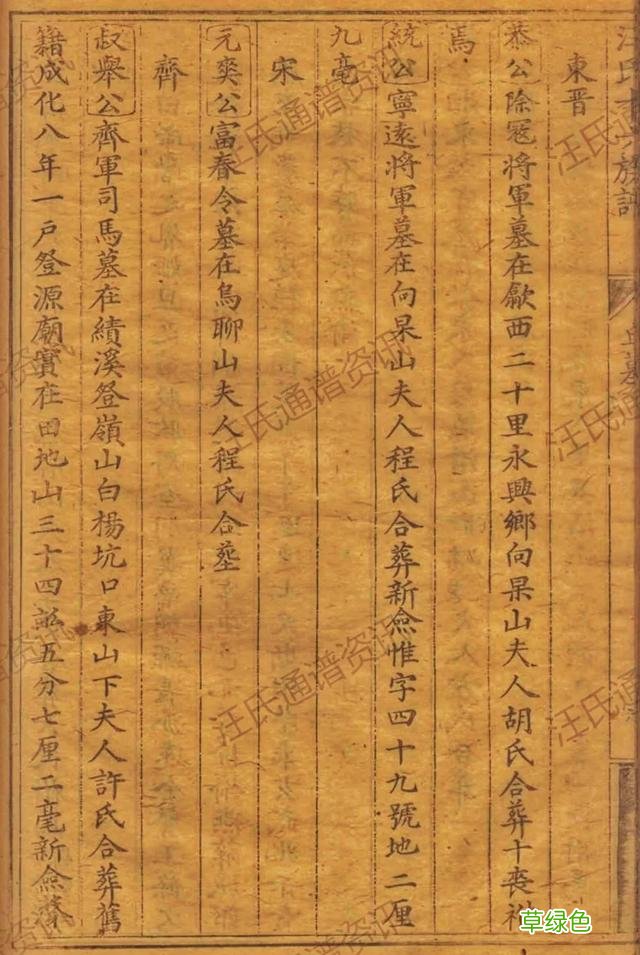 東晉
恭公除冦將軍墓在歙西二十里永興鄉向杲山夫人胡氏合葬十喪祔
焉
統公寧遠將軍墓在向杲山夫人程氏合葬新僉惟字四十九號地二厘
九毫
宋
元奕公富春令墓在烏聊山夫人程氏合塟
齊
叔舉公齊軍司馬墓在績溪登嶺山白楊坑口東山下夫人許氏合葬舊
籍成化八年一戸登源廟實在田地山三十四畝五分七厘二毫新僉
汪氏通譜資訊
草绿色